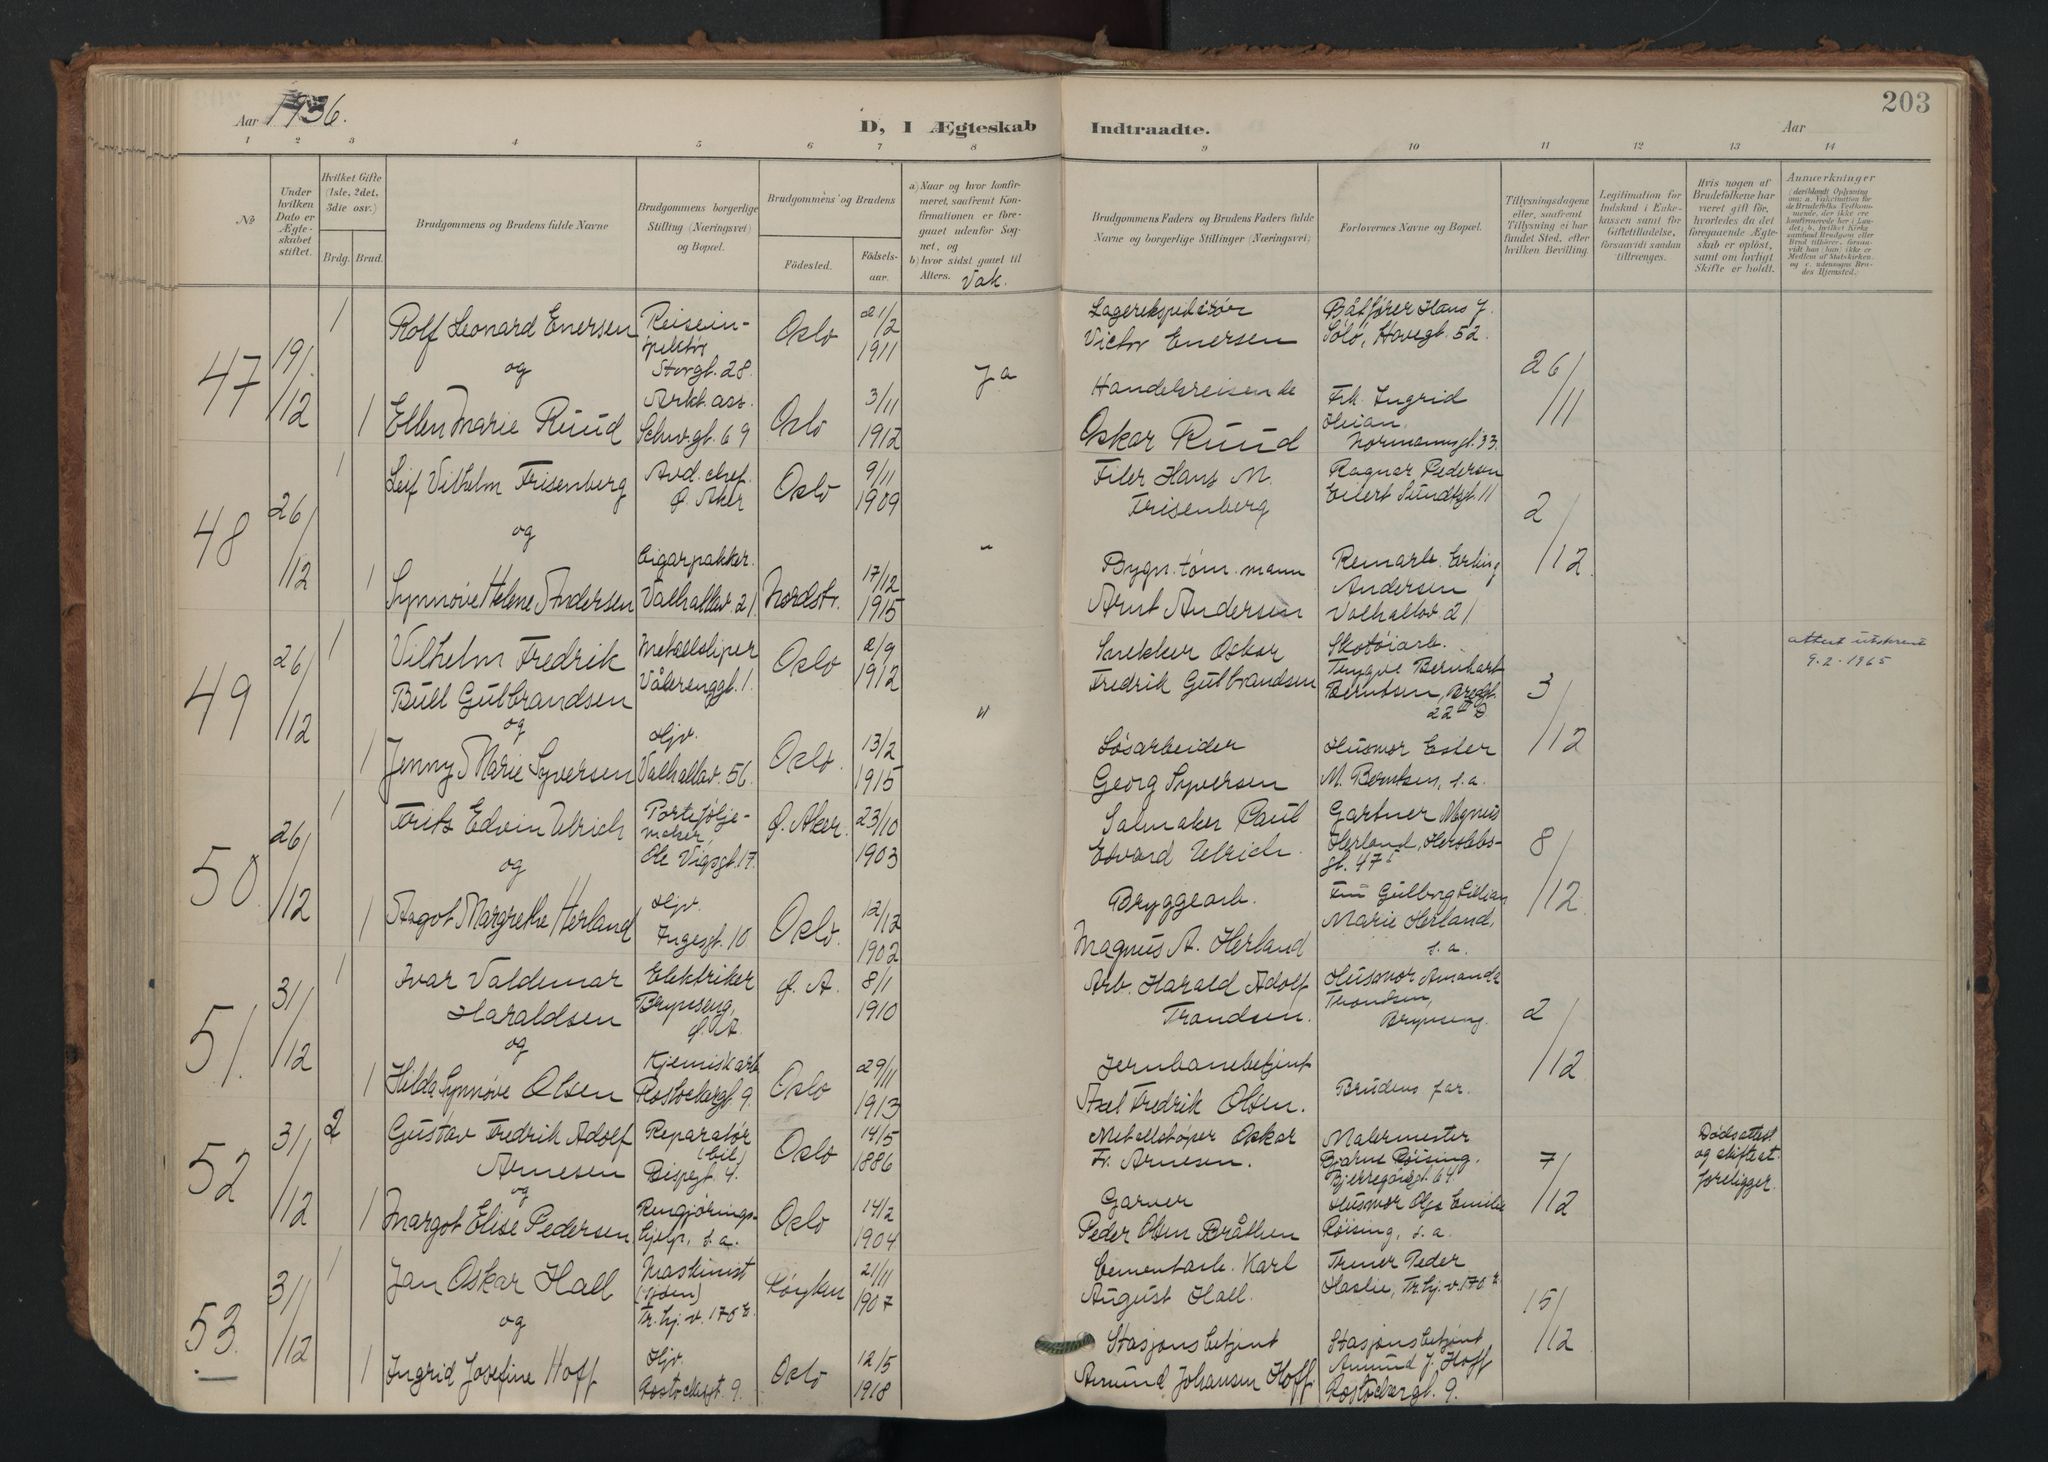 Aar 1936.
D, I Ægteskab
Indtraadte.
203
Aar
1 2 3 4 5 6 7 8 9 10 11 12 13 14
No
Under hvilken Dato er Ægteskabet stiftet.
Hvilket Gifte (1ste, 2det, 3die osv.)
Brdg. Brud.
Brudgommens og Brudens fulde Navne
Brudgommens borgerlige Stilling (Næringsvei) og Bopæl.
Brudgommens og Brudens
Fødested.
Fødselsaar.
a) Naar og hvor konfirmeret, saafremt Konfirmationen er foregaaet udenfor Sognet, og
b) hvor sidst gaaet til Alters.
Vak.
Brudgommens Faders og Brudens Faders fulde Navne og borgerlige Stillinger (Næringsvei)
Forlovernes Navne og Bopæl.
Tillysningsdagene eller, saafremt Tillysning ei har fundet Sted, efter hvilken Bevilling.
Legitimation for Indskud i Enkekassen samt for Giftetilladelse, forsaavidt saadan tiltrænges.
Hvis nogen af Brudefolkene har været gift før, hvorledes da det foregaaende Ægteskab er opløst, samt om lovligt Skifte er holdt.
Anmærkninger
47
19/12
1
Rolf Leonard Enersen
og
1
Ellen Marie Ruud
Reisein-
spektør
Storgt. 28.
Arkt. ass.
Schw.gt. 69
Oslo
21/2
1911
Oslo
3/11
1912
Ja
Lagerekspeditør
Victor Enersen
Handelsreisende
Oskar Ruud
Båtfører Hans J.
Solø, Hovegt. 52.
Frk. Ingrid
Normannsgt. 33.
26/11
48
26/12
1
Leif Vilhelm Frisenberg
og
1
Synnøve Helene Andersen
Avd. chef.
Ø. Aker
Cigarpakker.
Valhallav. 21.
Oslo
9/11
1909
Nordstr.
17/12
1915
"
Filer Hans M.
Frisenberg
Bygn. tøm. mann
Arnt Andersen
Ragnar Pedersen
Eilert Sundtsgt. 11
Erling
Andersen
Valhallav 21
2/12
49
26/12
1
Vilhelm Fredrik
Bull Gulbrandsen
og
1
Jenny Marie Syversen
Metallsliper
Vålerenggt. 1.
Hjv.
Valhallav. 56.
Oslo
2/9
1912
Oslo.
13/2
1915
"
Snekker Oskar
Fredrik Gulbrandsen
Løsarbeider
Georg Syversen
Skotøiarb.
Trygve Bernhart
Berntsen, Bredgt.
22 D
Husmor Ester
M. Berntsen, s.a.
3/12
attest utskrevet
9.2.1965
50.
26/12
1
Frits Edvin Ulrich
og
1
Aagot Margrethe Herland
Porteføljemaker,
Ole Vigsgt. 17.
Hjv.
Ingesgt. 10
Ø. Aker.
23/10
1903
Oslo.
12/12
1902
Salmaker Paul
Edvard Ulrich.
Bryggearb.
Magnus A. Herland
Gartner Magnus
Herland, Herslebs-
gt. 47
Gulborg Lillian
Marie Herland,
s.a.
8/12
51.
31/12
1
Ivar Valdemar
Haraldsen
og
1
Hilda Synnøve Olsen
Elektriker
Brynseng,
Ø.A.
Kjemisk arb
Rostockergt. 9.
Ø. A.
8/1
1910
Oslo
29/11
1913
Arb. Harald Adolf
Trondsen.
Jernbanebetjent
Axel Fredrik Olsen.
Husmor Amanda
Trondsen,
Brynseng.
Brudens far.
2/12
52
31/12
2
Gustav Fredrik Adolf
Arnesen
og
1
Margot Elise Pedersen
Reparatør
(bil)
Bispegt. 4.
Rengjørings-
hjelp, s.a.
Oslo
14/5
1886
Oslo
14/2
1904
Metallstøper Oskar
Fr. Arnesen.
Garver
Peder Olsen Bråthen
Malermester
Bjarne Røising,
Bjerregårdsgt. 64.
Husmor Olga Emilie
Røising, s.a.
7/12
Dødsattest
og skifteat.
foreligger.
53.
31/12
1
Jan Oskar Hall
og
1
Ingrid Josefine Hoff
Maskinist
Tr.hj.v. 170
Hjv.
Rostockergt. 9.
Røyken
21/11
1907
Oslo
12/5
1918
Cementarb. Karl
August Hall.
Stasjonsbetjent
Amund Johansen Hoff.
Peder
Haslie, Tr.hj.v. 170
Stasjonsbetjent,
Amund J. Hoff
Rostockergt. 9.
15/12